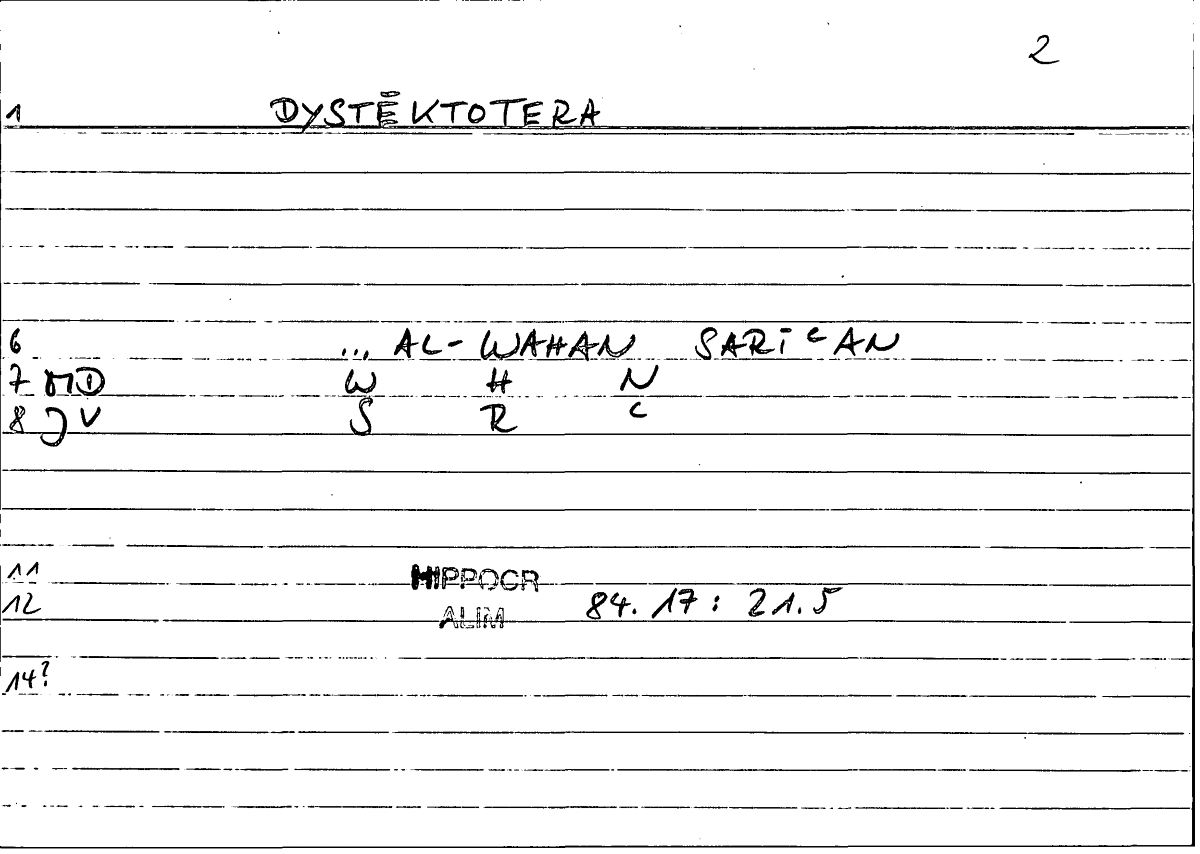 2
1 DYSTĒKTOTERA
6 ... AL-WAHAN SARĪʿAN
7 MD W H N
8 JV S R ʿ
11 HIPPOCR
12 ALIM 84.17: 21.5
14?